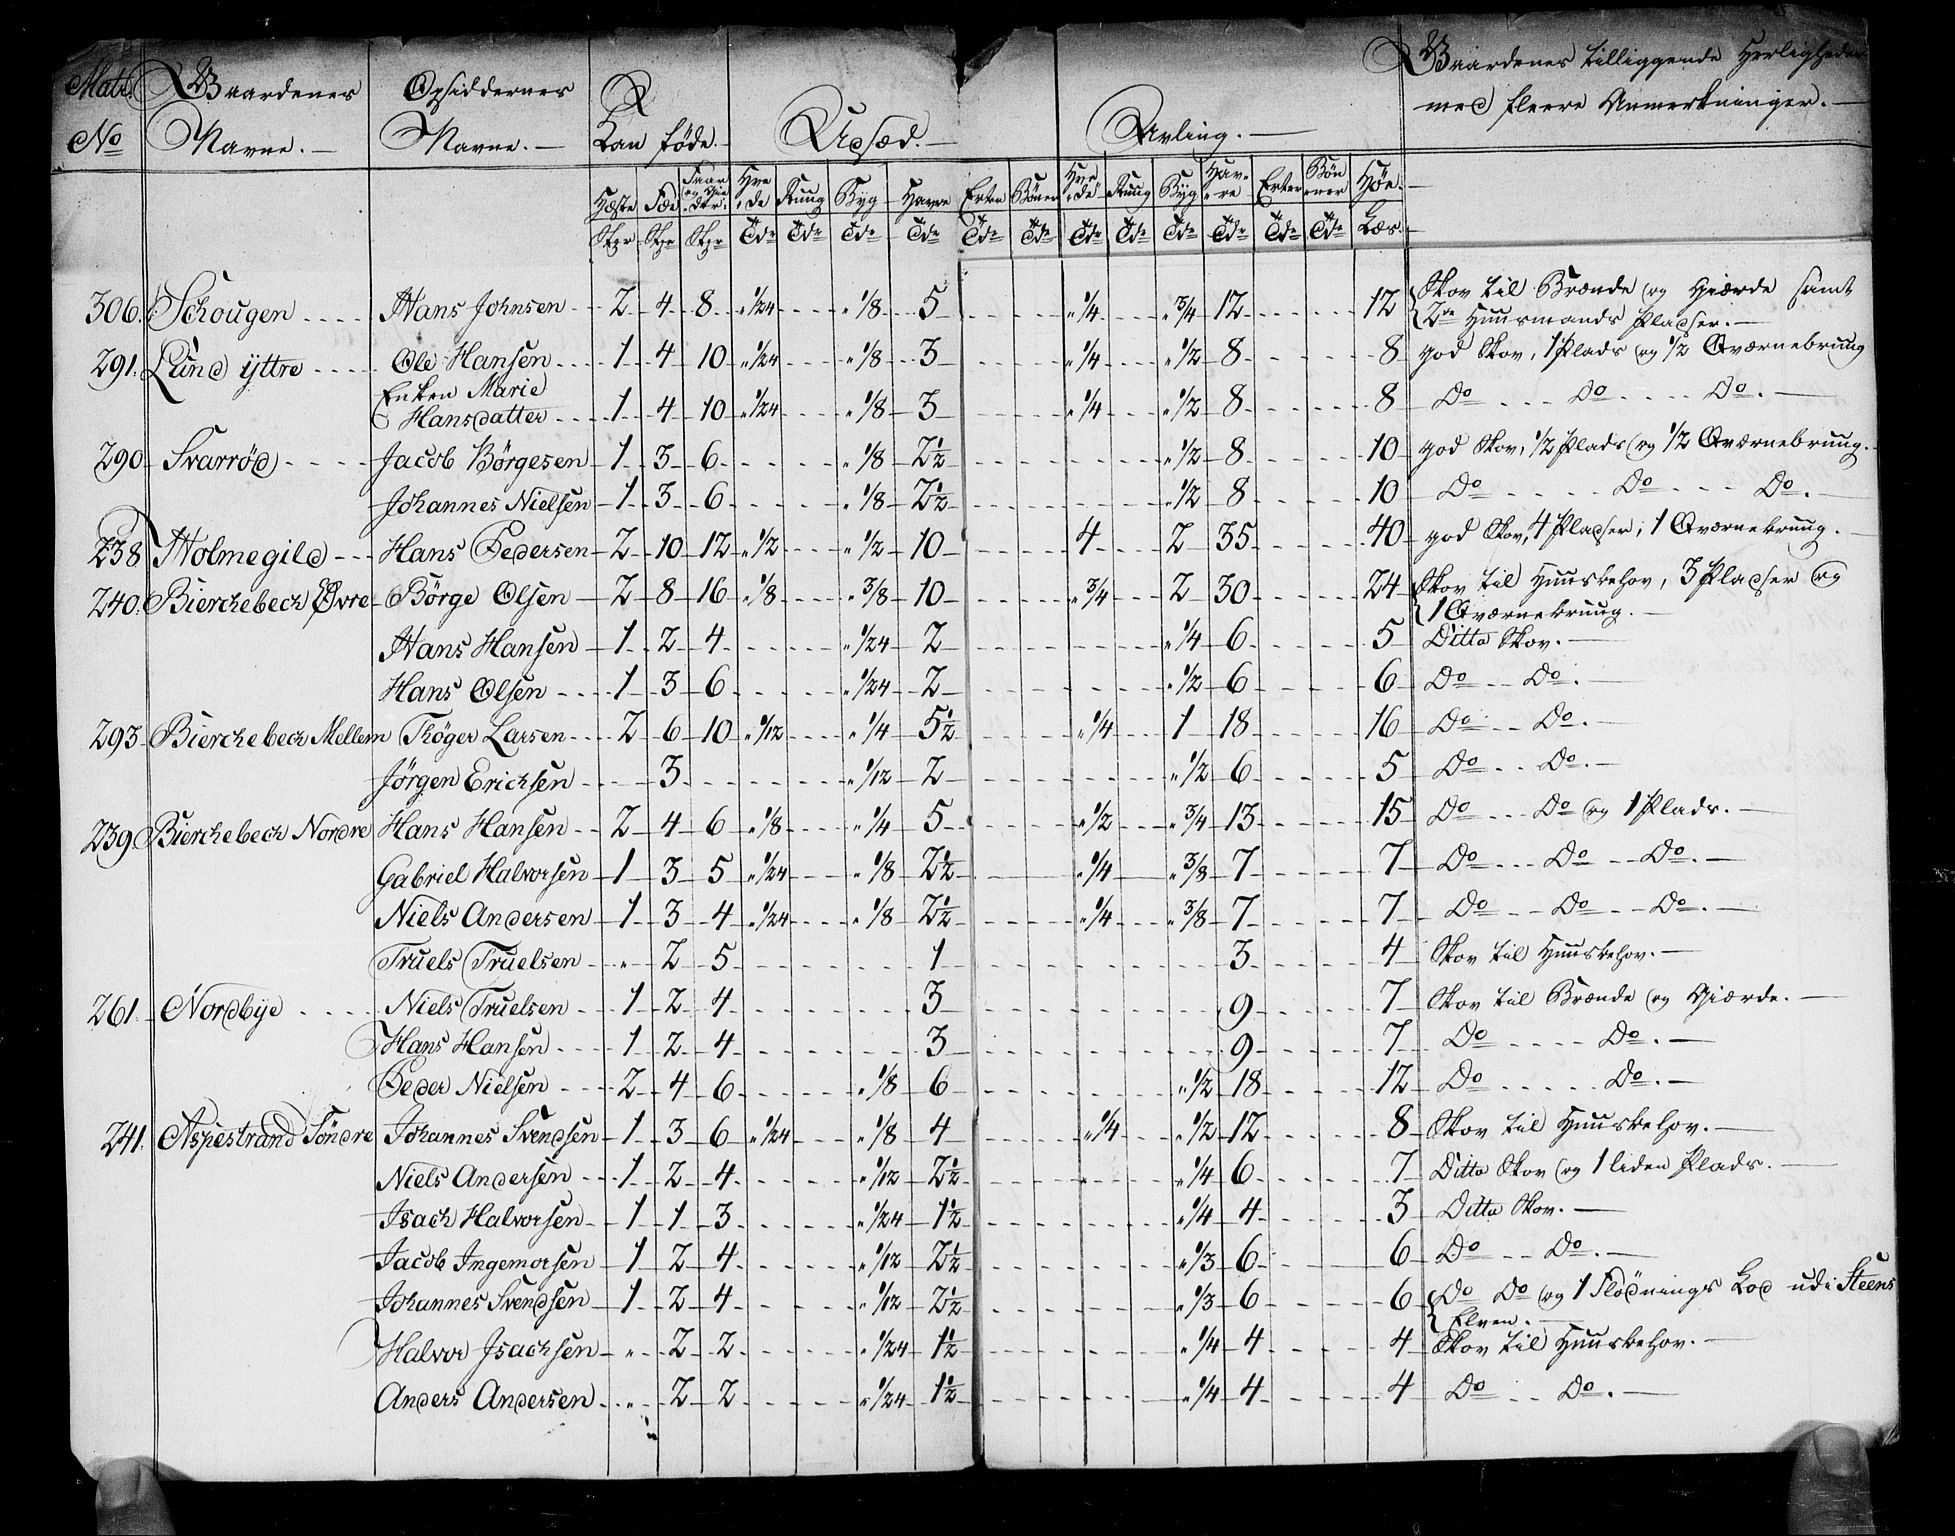 Matr. Gaardenes Opsiddernes Kan føde. Udsæd. Avling. Gaardenes tilliggende Herligheder
No Navne. Navne. med fleere Anmerkninger.
Hæste Fæe Faar og Gieder Hvede Ruug Byg Havre Erter Bönner Hvede Ruug Byg Havre Erter Bönner Höe
Stkr Stkr Stkr Tdr Tdr Tdr Tdr Tdr Tdr Tdr Tdr Tdr Tdr Tdr Tdr Læs
306. Schougen Hans Johnsen 2 4 8 " 1/24 " 1/8 5 " 1/4 " 3/4 12 12 Skov til Brænde og Gierde samt
2de Huusmands Pladser.
291. Lund ÿttre Ole Hansen 1 4 10 " 1/24 " 1/8 3 " 1/4 " 1/2 8 8 god Skov, 1 Plads og 1/2 Qværnebruug
Enken Marie
Hansdatter 1 4 10 " 1/24 " 1/8 3 " 1/4 " 1/2 8 8 Do Do Do.
290 Svarröd Jacob Börgesen 1 3 6 " 1/8 2 1/2 " 1/2 8 10 god Skov, 1/2 Plads og 1/2 Qværnebruug.
Johannes Nielsen 1 3 6 " 1/8 2 1/2 " 1/2 8 10 Do Do Do.
238 Holmegild Hans Pedersen 2 10 12 " 1/2 " 1/2 10 4 2 35 40 god Skov, 4 Pladser, 1 Qværnebruug.
240. Bierchebech Øvre Börge Olsen 2 8 16 " 1/8 " 3/8 10 " 3/4 2 30 24 Skov til Huusbehov, 3 Pladser og
1 Qværnebruug.
Hans Hansen 1 2 4 " 1/24 2 " 1/4 6 5 Ditto Skov.
Hans Olsen 1 3 6 " 1/24 2 " 1/2 6 6 Do Do.
293 Bierchebech Mellem Thöger Larsen 2 6 10 " 1/12 " 1/4 5 1/2 " 1/4 1 18 16 Do Do.
Jörgen Erichsen 3 " 1/12 2 " 1/2 6 5 Do Do.
239. Bierchebech Nordre Hans Hansen 2 4 6 " 1/8 " 1/4 5 " 1/2 " 3/4 13 15 Do Do og 1 Plads.
Gabriel Halvorsen 1 3 5 " 1/24 " 1/8 2 1/2 " 1/4 " 3/8 7 7 Do Do Do.
Niels Andersen 1 3 4 " 1/24 " 1/8 2 1/2 " 1/4 " 3/8 7 7 Do Do Do.
Truels Truelsen " 2 5 1 3 4 Skov til Huusbehov.
261. Nordbÿe Niels Truelsen 1 2 4 3 9 7 Skov til Brænde og Gierde.
Hans Hansen 1 2 4 3 9 7 Do Do.
Peder Nielsen 2 4 6 " 1/8 6 " 1/2 18 12 Do Do.
241. Aspestrand Söndre Johannes Svendsen 1 3 6 " 1/24 " 1/8 4 " 1/4 " 1/2 12 8 Skov til Huusbehov.
Niels Andersen 1 2 4 " 1/12 2 1/2 " 1/4 6 7 Ditto Skov og 1 liden Plads.
Isach Halvorsen 1 1 3 " 1/24 1 1/2 " 1/4 4 3 Ditto Skov.
Jacob Ingemorsen 1 2 4 " 1/12 2 1/2 " 1/3 6 6 Do Do.
Johannes Svendsen 1 2 4 " 1/12 2 1/2 " 1/3 6 6 Do Do og 1 Flödnings Lod udi Steens
Elven.
Halvor Isachsen " 2 2 " 1/24 1 1/2 " 1/4 4 4 Skov til Huusbehov.
Anders Andersen " 2 2 " 1/24 1 1/2 " 1/4 4 4 Do Do.